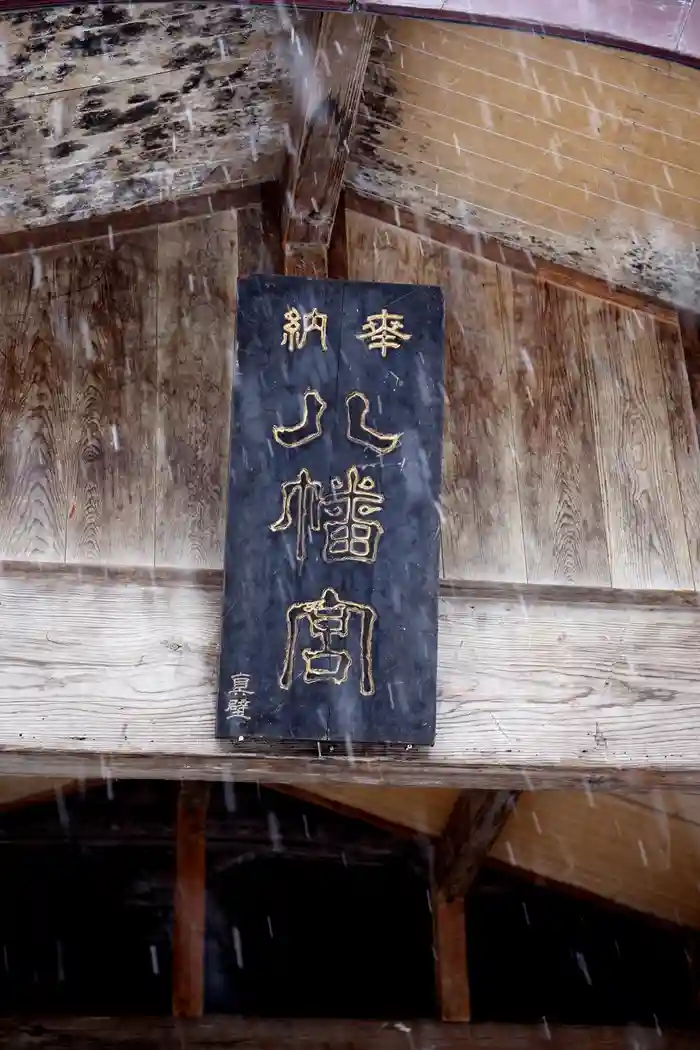 奉納
八幡宮
真壁